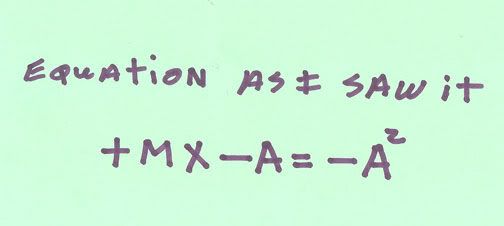 EQUATION AS I SAW it
+MX-A=-A²